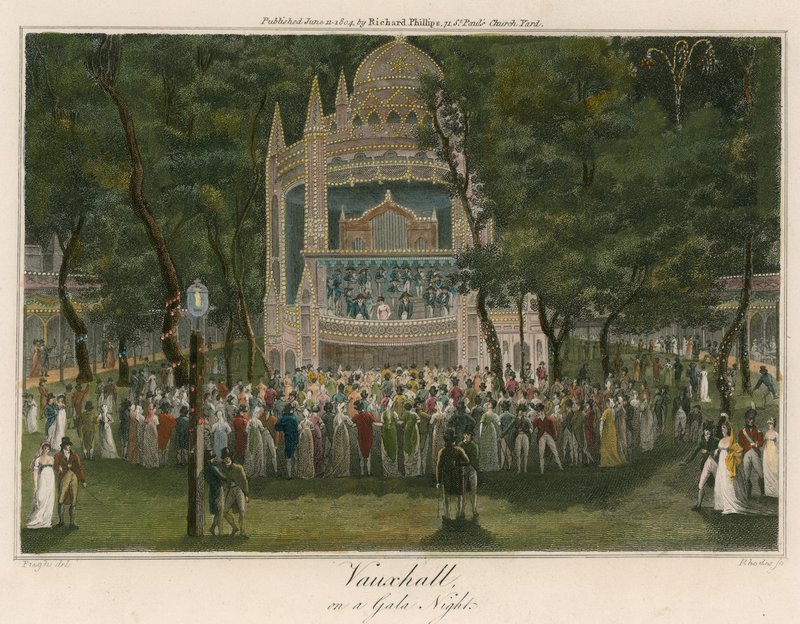 Published June 11-1804, by Richard Phillips, 71 St. Paul's Church Yard.
Pugh del
Rhodes sc
Vauxhall,
on a Gala Night.